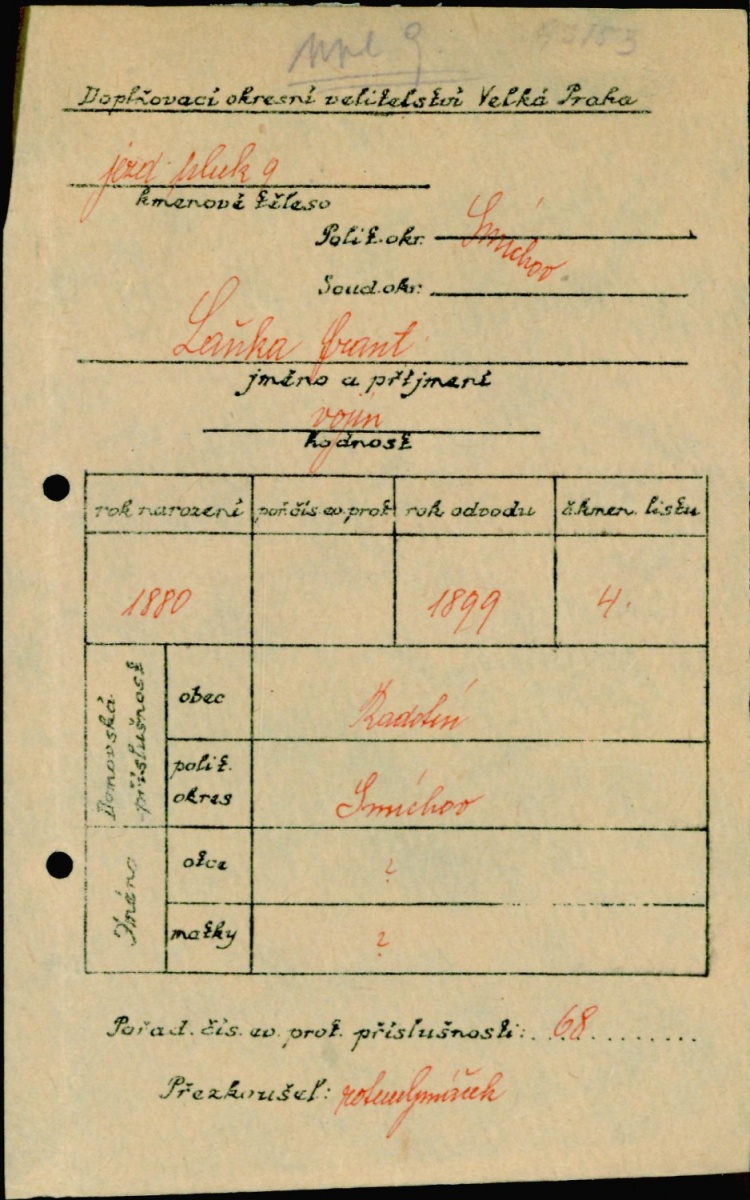 9
Doplňovací okresní velitelství Velká Praha
jezd. pluk 9
kmenové těleso
Polit. okr. Smíchov
Soud. okr:
Laňka Frant
jméno a příjmení
vojín
hodnost
rok narození poř. čís. ev. prot. rok odvodu č. kmen. listu
1880 1899 4.
Domovská příslušnost
obec Radotín
polit. okres Smíchov
Jméno
otce ?
matky ?
Pořad. čís. ev. prot. příslušnosti: 68
Přezkoušel: